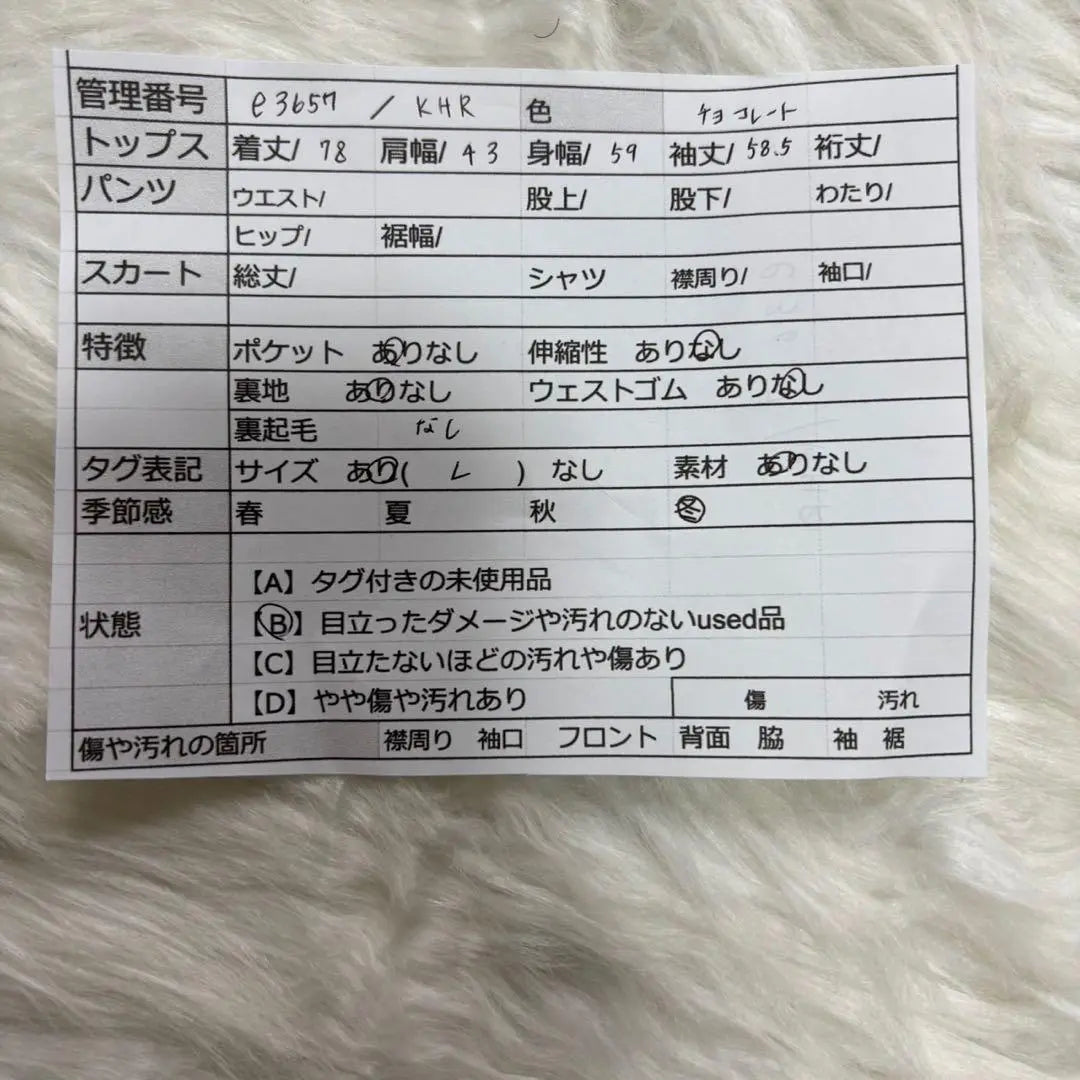 管理番号 e3657 / KHR 色 チョコレート
トップス 着丈/ 78 肩幅/ 43 身幅/ 59 袖丈/ 58.5 裄丈/
パンツ ウエスト/ 股上/ 股下/ わたり/
ヒップ/ 裾幅/
スカート 総丈/ シャツ 襟周り/ 袖口/
特徴 ポケット ありなし 伸縮性 ありなし
裏地 ありなし ウェストゴム ありなし
裏起毛 なし
タグ表記 サイズ あり( L ) なし 素材 ありなし
季節感 春 夏 秋 冬
【A】タグ付きの未使用品
状態 【B】目立ったダメージや汚れのないused品
【C】目立たないほどの汚れや傷あり
【D】やや傷や汚れあり 傷 汚れ
傷や汚れの箇所 襟周り 袖口 フロント 背面 脇 袖 裾